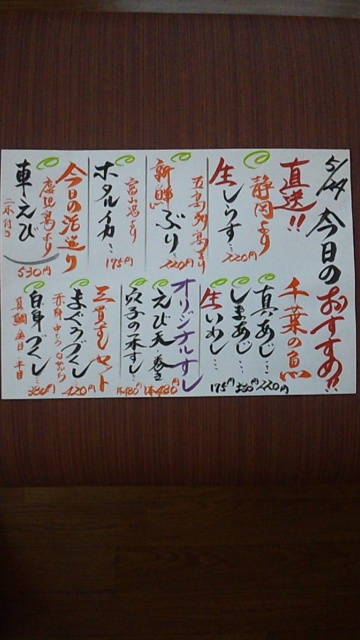 5/24 今日のおすすめ!!
直送!!
静岡より
生しらす… 220円
五島列島より
新鮮ぶり… 220円
富山湾より
ホタルイカ… 175円
今日の活造り
鹿児島より
車えび
二本付 530円
千葉の魚
真あじ… 220円
しまあじ…
生いわし… 175円
オリジナルすし
えび天巻き
穴子の一本すし 480円
三貫セット
まぐろづくし…
赤身 中とろ
白身づくし…
真鯛